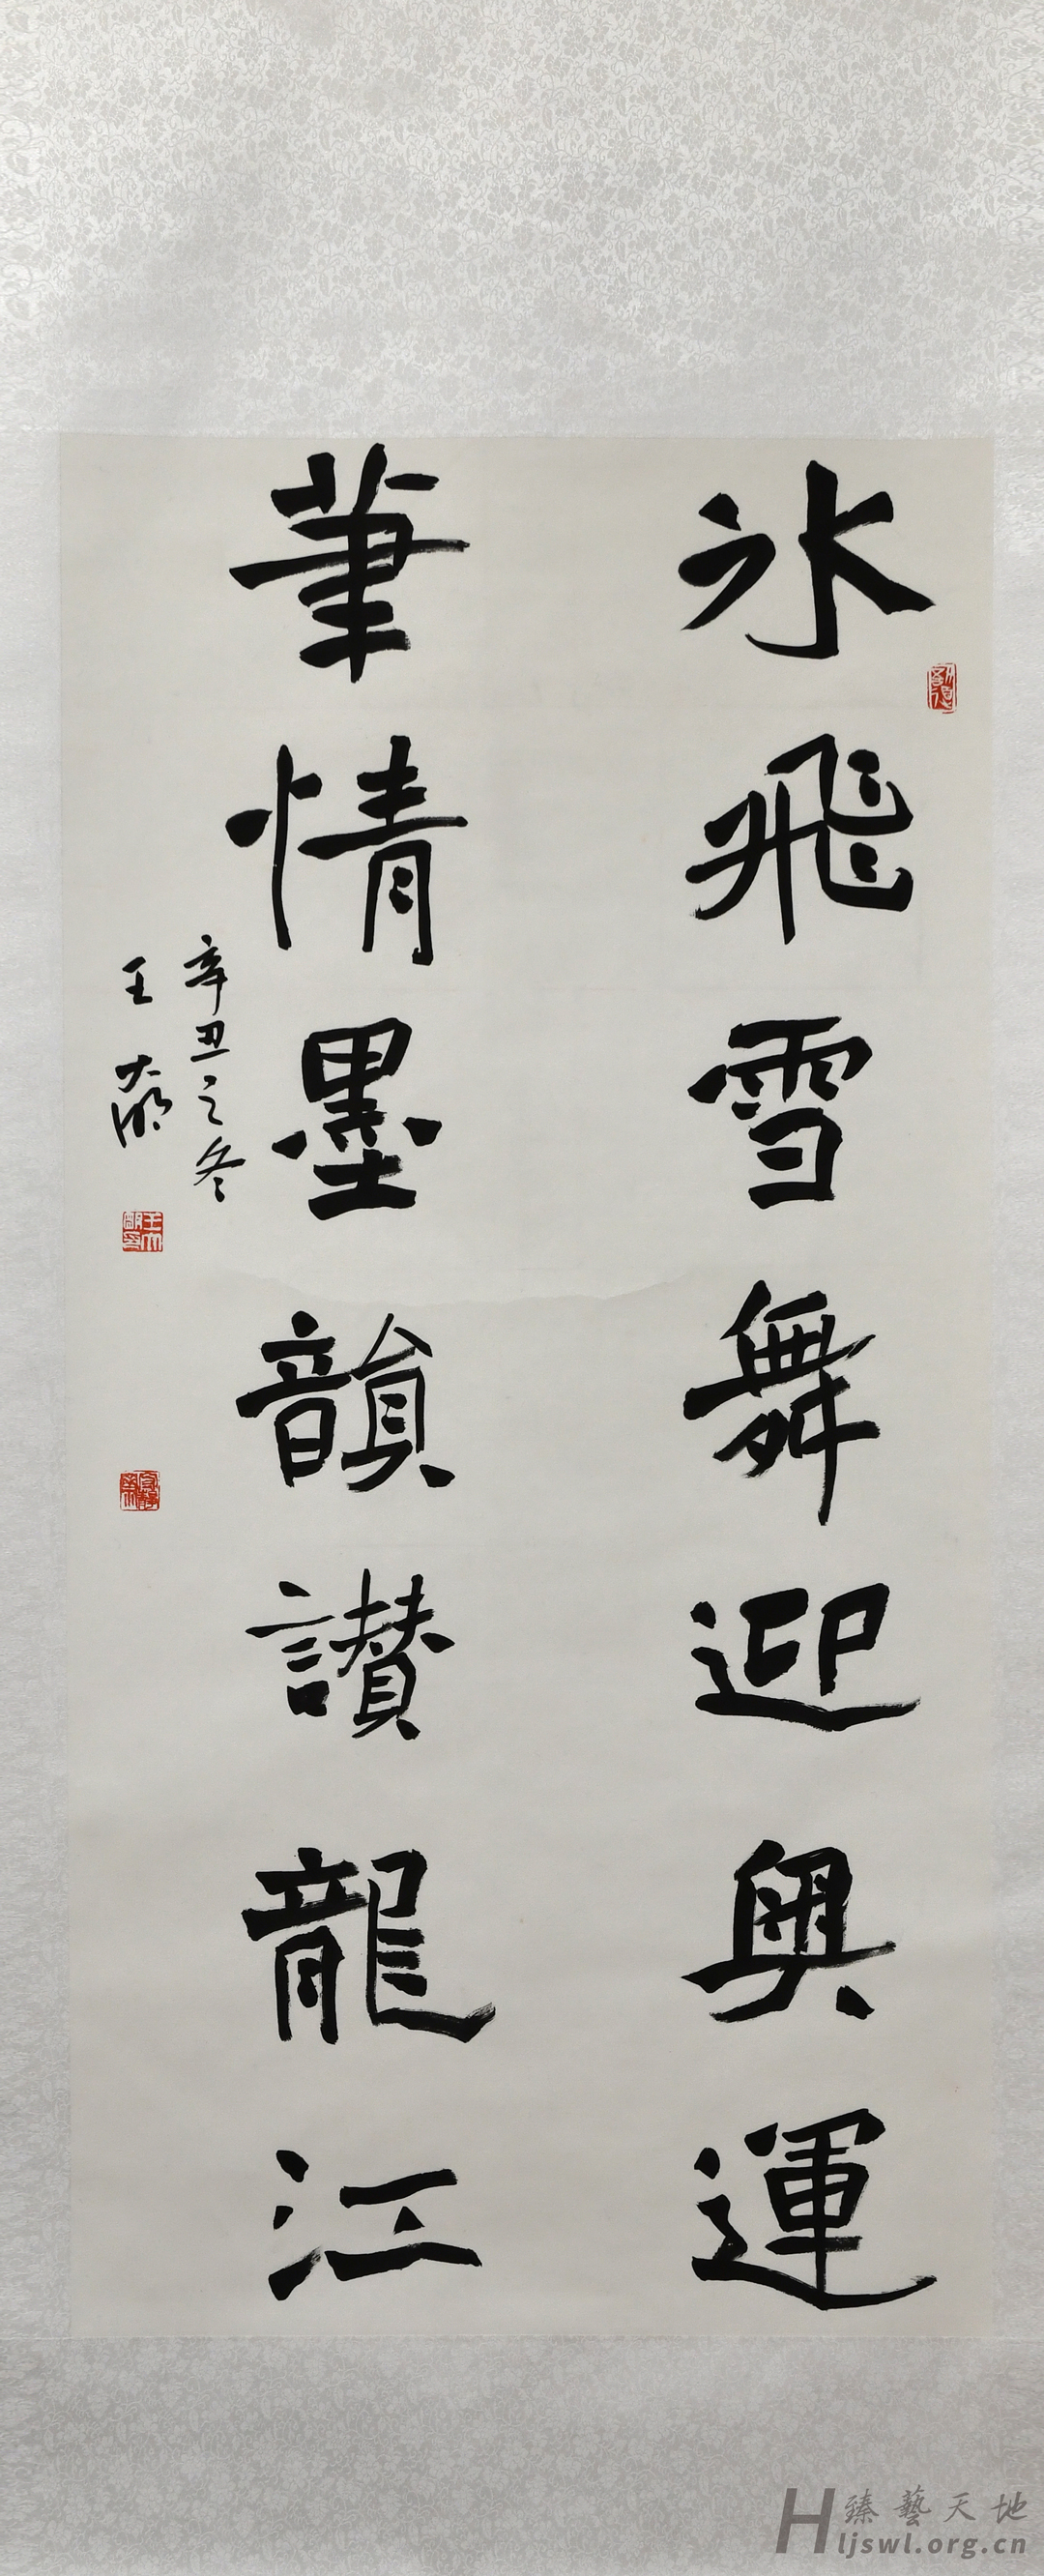 冰飛雪舞迎奧運
筆情墨韻讚龍江
辛丑之冬
王大
臻藝天地
ljswl.org.cn